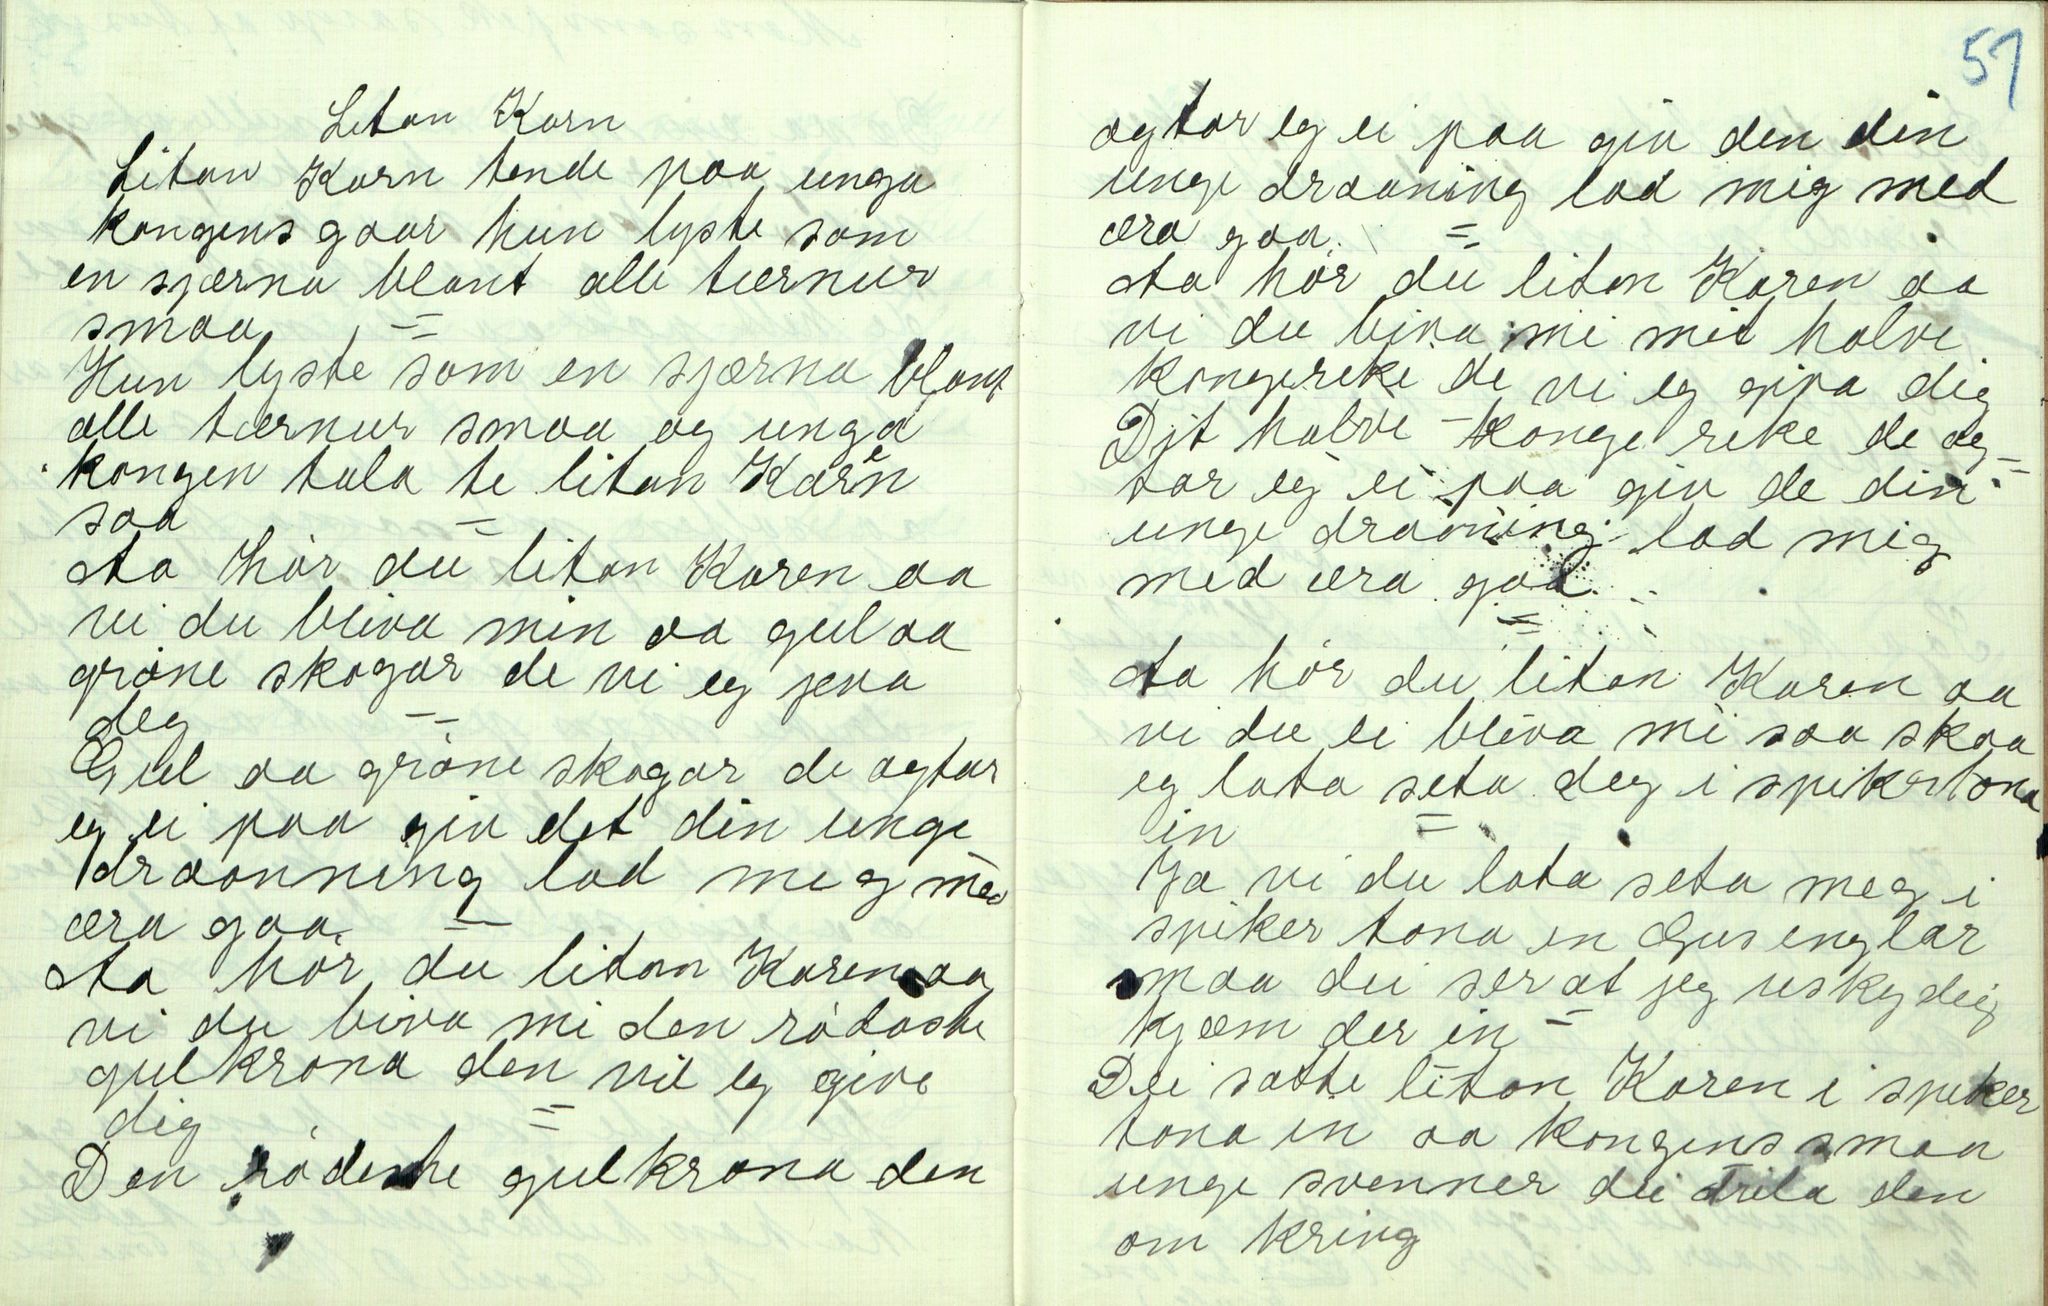 Litan Karn
Litan Karn tende paa unga
kongens gaar hun lyste som
en sjærna blant alle tærnur
smaa =
Hun lyste som en sjærna blant
alle tærnur smaa og unga
kongen tala te litan Karen
saa =
Aa hör du litan Karen aa
vi du bliva min aa gul aa
gröne skogar de vi eg jeva
deg =
Gul aa gröne skogar de agtar
eg ei paa giv det din unge
draonning lad meg med
æra gaa. =
Aa hör du litan Karen aa
vi du biva mi den rödaste
gulkrona den vil eg give
dig =
Den rödeste gulkrona den
57
agtar eg ei paa giv den din
unge draaning lad mig med
æra gaa. =
Aa hör du litan Karen aa
vi du biva mi mit halve
kongereke de vi eg giva dig
Dit halve konge reke de ag=
tar eg ei paa giv de din
unge draoning lad mig
med æra gaa.
=
Aa hör du litan Karen aa
vi du ei bliva mi saa skaa
eg lata seta deg i spikertona
in =
Ja vi du lata seta meg i
spiker tona in Gus englar
maa dei ser at jeg uskydig
kjæm der in =
Dei satte litan Karen i spiker
tona in aa kongens smaa
unge svenner dei trila den
om kring